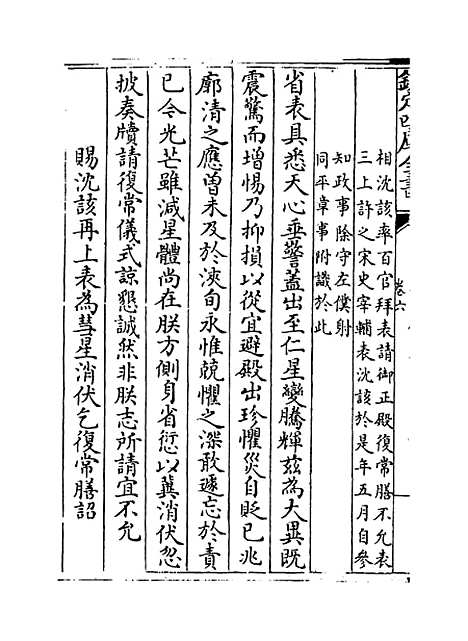 欽定四庫全書
卷六
相沈該率百官拜表請御正殿復常膳不允表
三上許之宋史宰輔表沈該於是年五月自參
知政事除守左僕射
同平章事附識於此
省表具悉天心垂警蓋出至仁星變騰輝茲為大異既
震驚而增惕乃抑損以從宜避殿出珍懼災自貶已兆
廓清之應曽未及於浹旬永惟兢懼之深敢遽忘於責
已今光芒雖減星體尚在朕方側身省愆以冀消伏忽
披奏牘請復常儀式諒懇誠然非朕志所請宜不允
賜沈該再上表為彗星消伏乞復常膳詔